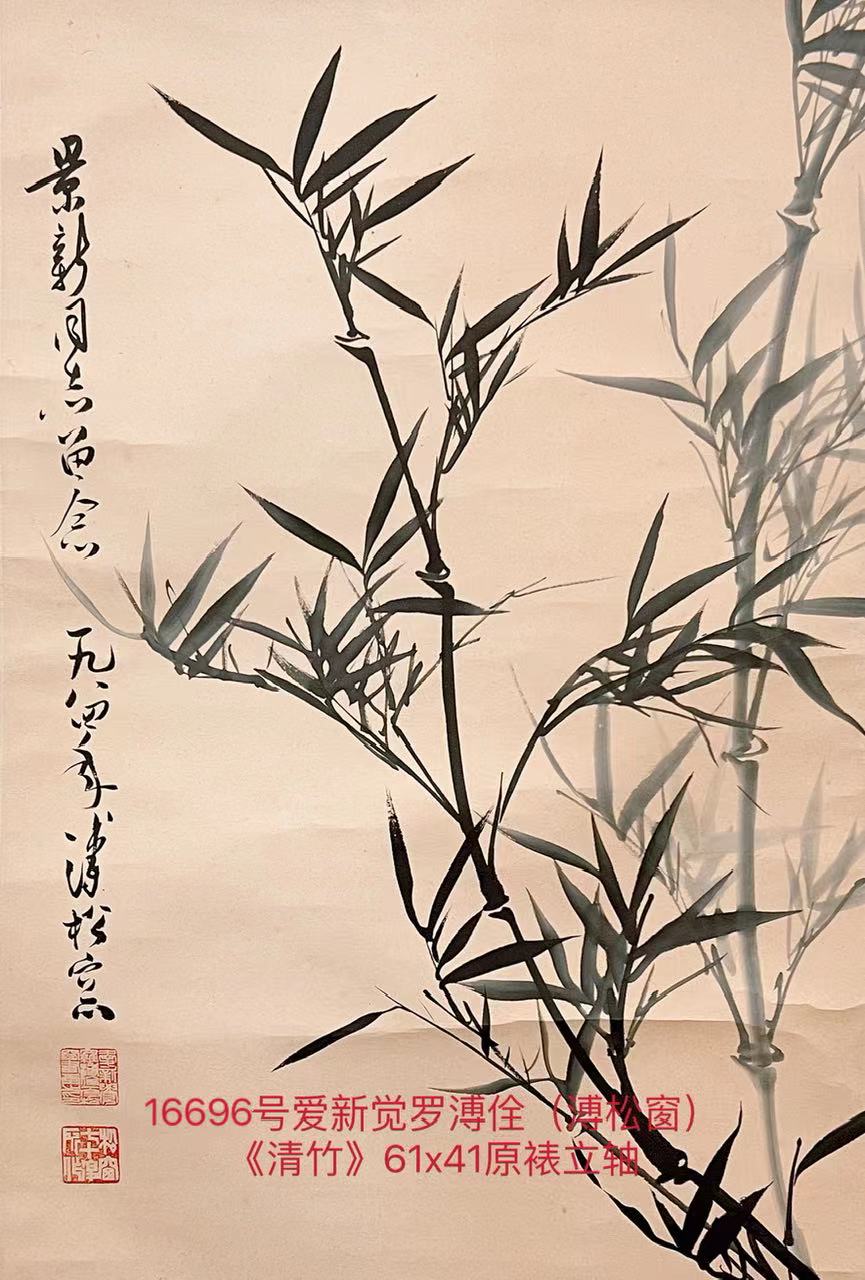 景新同志留念
一九八四年溥松窗
16696号爱新觉罗溥佺（溥松窗）
《清竹》61x41原裱立轴